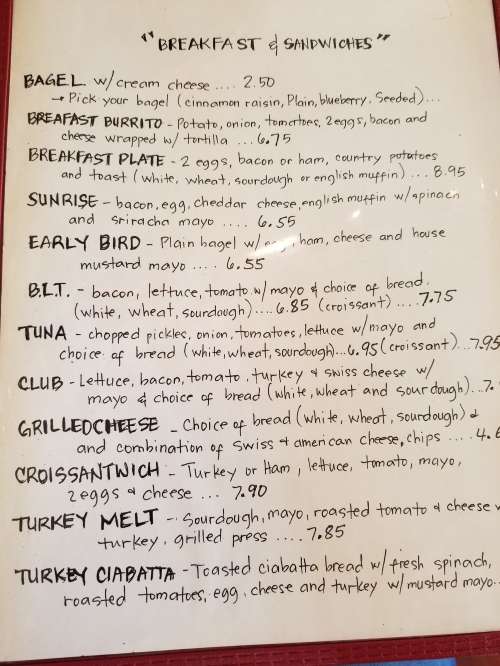 "BREAKFAST & SANDWICHES"
BAGEL w/cream cheese .... 2.50
→ Pick your bagel (cinnamon raisin, Plain, blueberry, Seeded)...
BREAFAST BURRITO - Potato, onion, tomatoes, 2eggs, bacon and
cheese wrapped w/ tortilla ... 6.75
BREAKFAST PLATE - 2 eggs, bacon or ham, country potatoes
and toast (white, wheat, sourdough or english muffin) ... 8.95
SUNRISE - bacon, egg, cheddar cheese, english muffin w/spinach
and sriracha mayo .... 6.55
EARLY BIRD - Plain bagel w/ ham, cheese and house
mustard mayo .... 6.55
B.L.T. - bacon, lettuce, tomato w/mayo & choice of bread.
(white, wheat, sourdough) .... 6.85 (croissant) .... 7.75
TUNA - chopped pickles, onion, tomatoes, lettuce w/mayo and
choice of bread (white, wheat, sourdough)...6.95 (croissant)...7.95
CLUB - Lettuce, bacon, tomato, turkey & swiss cheese w/
mayo & choice of bread (white, wheat and sourdough)...7.
GRILLEDCHEESE - Choice of bread (white, wheat, sourdough) &
and combination of swiss & american cheese, chips .... 4.
CROISSANTWICH - Turkey or Ham, lettuce, tomato, mayo,
2eggs & cheese ... 7.90
TURKEY MELT - Sourdough, mayo, roasted tomato & cheese
turkey, grilled press .... 7.85
TURKEY CIABATTA - Toasted ciabatta bread w/ fresh spinach,
roasted tomatoes, egg, cheese and turkey w/mustard mayo..